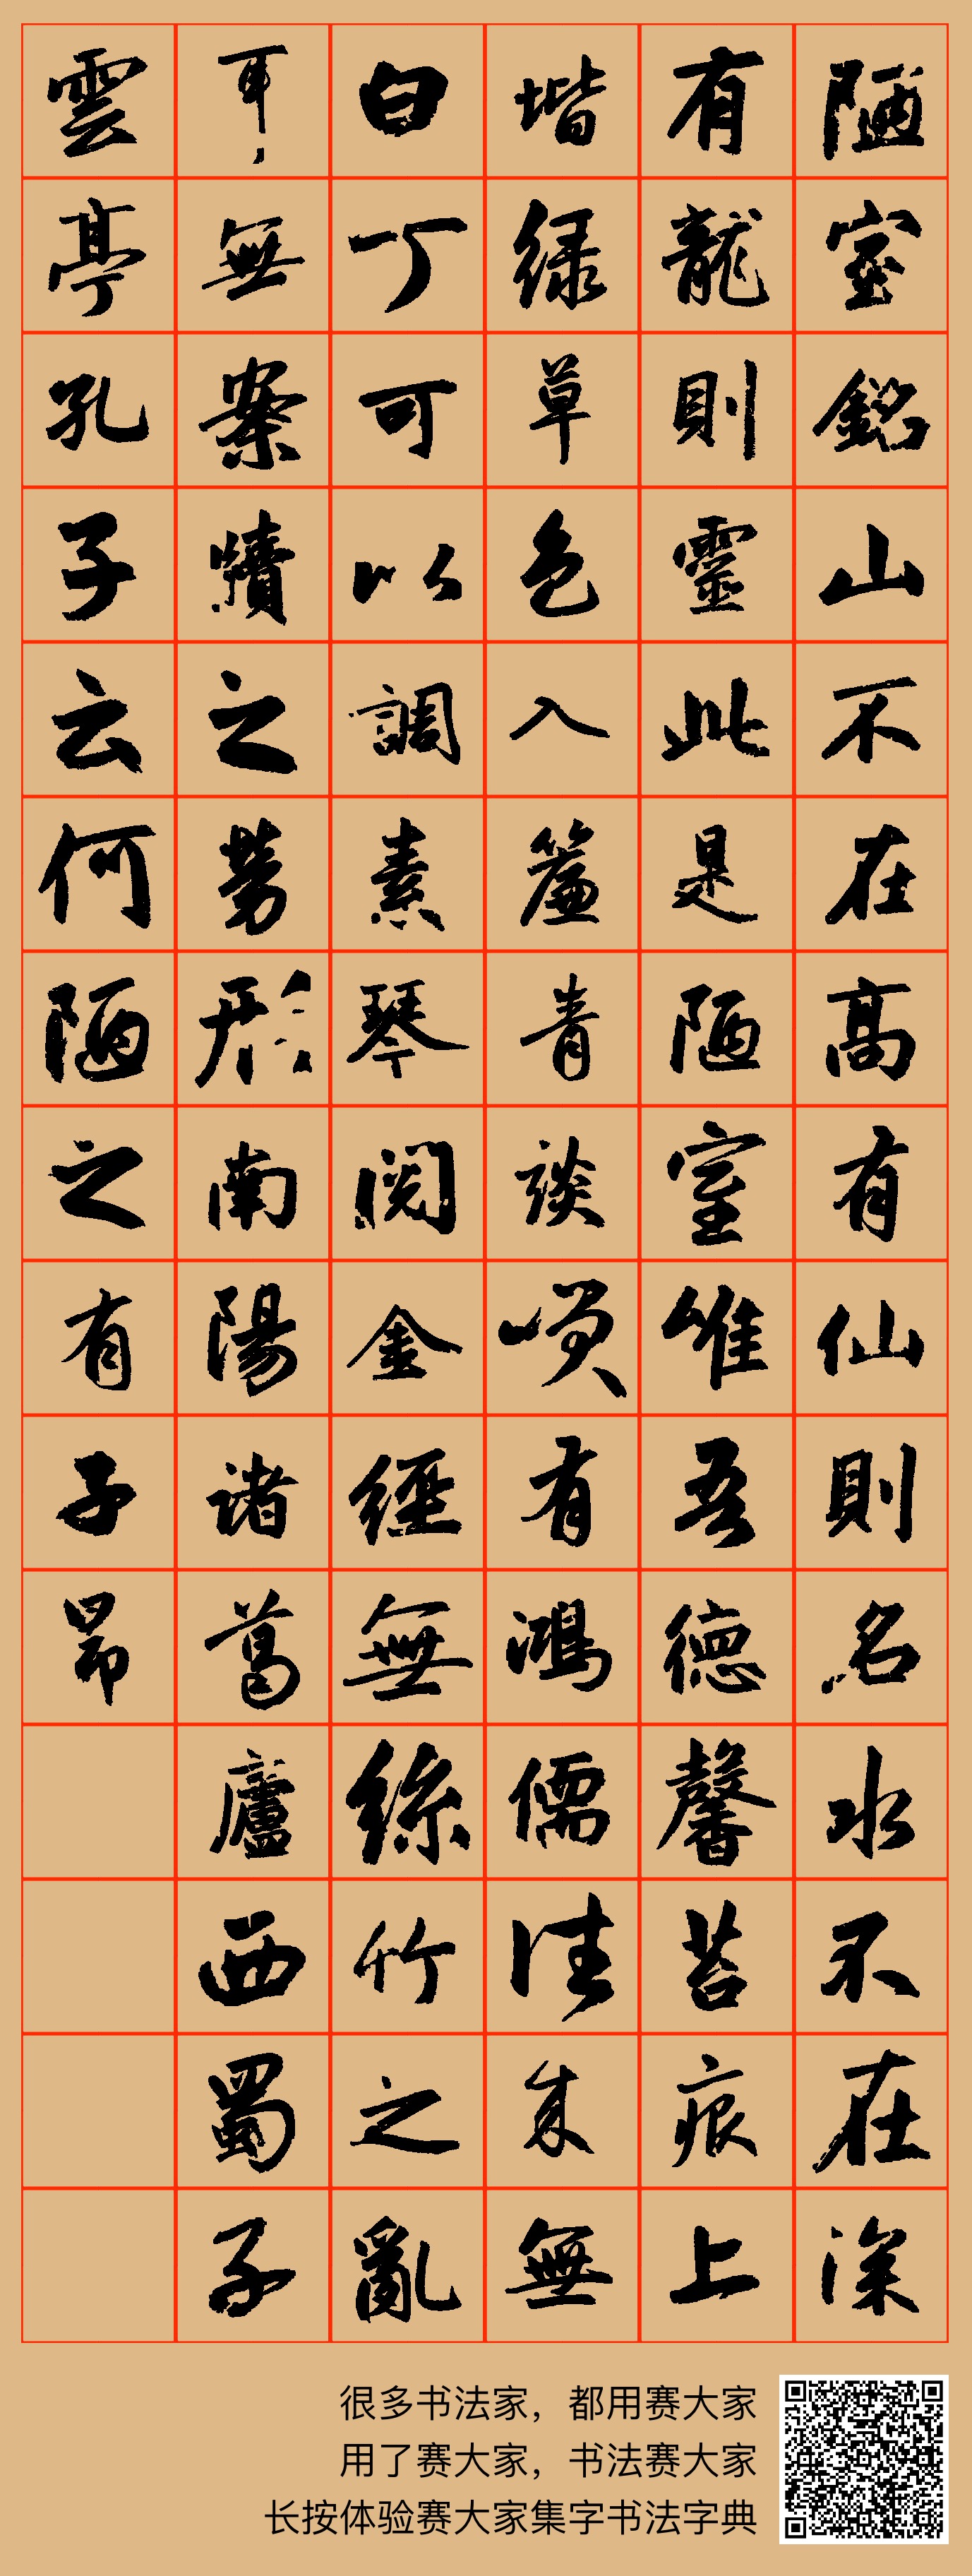 陋室銘山不在高有仙則名水不在深
有龍則靈此是陋室惟吾德馨苔痕上
堦緑草色入簾青談笑有鴻儒往来無
白丁可以調素琴閱金經無絲竹之亂
耳無案牘之勞形南陽諸葛廬西蜀子
雲亭孔子云何陋之有子昂
很多书法家，都用赛大家
用了赛大家，书法赛大家
长按体验赛大家集字书法字典